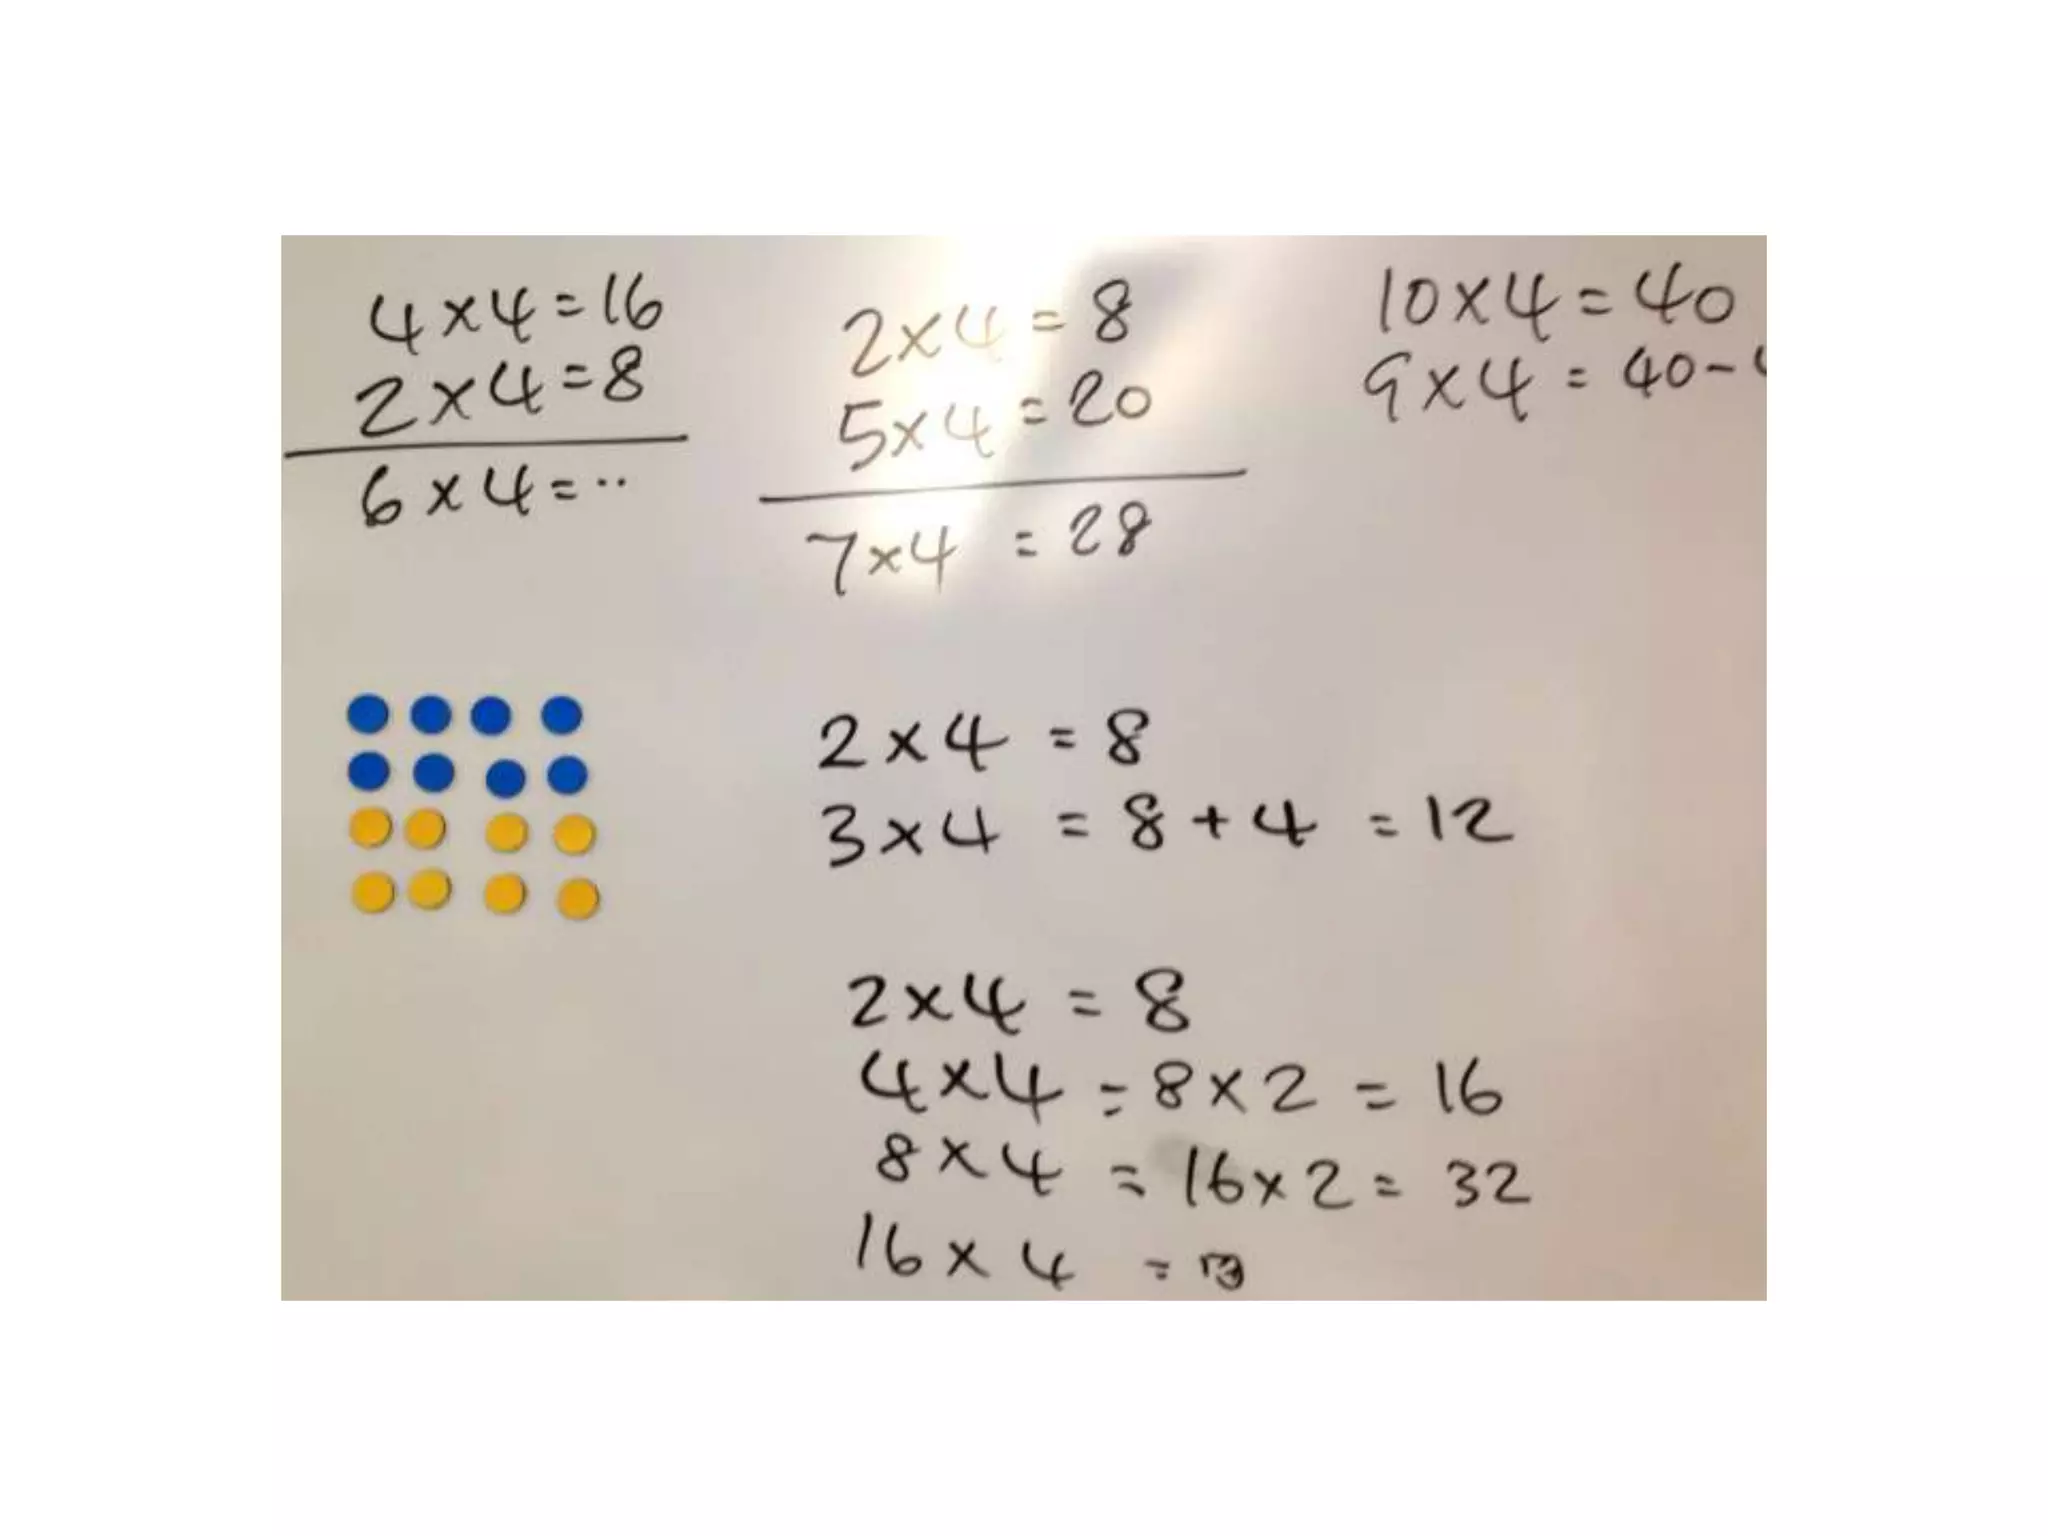 4×4=16
2×4=8
6×4=··
2×4=8
5×4=20
7×4=28
10×4=40
9×4=40-
2×4=8
3×4=8+4=12
2×4=8
4×4=8×2=16
8×4=16×2=32
16×4=